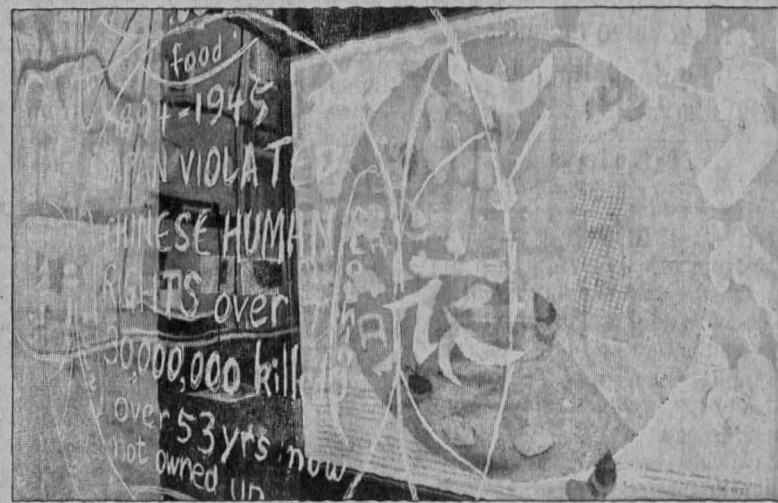 food
1894-1945
JAPAN VIOLATED
CHINESE HUMAN
RIGHTS over
30,000,000 killed
over 53 yrs now
not owned up